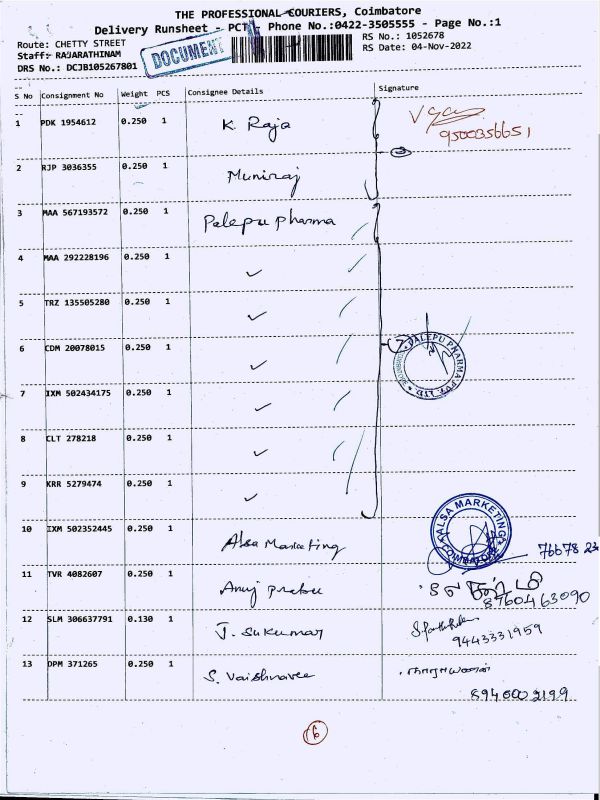 THE PROFESSIONAL COURIERS, Coimbatore
Delivery Runsheet - PCT - Phone No.:0422-3505555 - Page No.:1
Route: CHETTY STREET
RS No.: 1052678
Staff: RAJARATHINAM
RS Date: 04-Nov-2022
DRS No.: DCJB105267801
DOCUMENT
S No Consignment No Weight PCS Consignee Details Signature
1 PDK 1954612 0.250 1 K. Raja
9500356651
2 RJP 3036355 0.250 1 Muniraj
3 MAA 567193572 0.250 1 Palepu pharma
4 MAA 292228196 0.250 1 ✓
5 TRZ 135505280 0.250 1 ✓
6 CDM 20078015 0.250 1 ✓
PALEPU PHARMA PVT. LTD.
7 IXM 502434175 0.250 1 ✓
8 CLT 278218 0.250 1 ✓
9 KRR 5279474 0.250 1 ✓
10 IXM 502352445 0.250 1 Alsa Marketing
ALSA MARKETING COIMBATORE
76678 23
11 TVR 4082607 0.250 1 Anuj prabu
8760463090
12 SLM 306637791 0.130 1 J. Sukumar
9443331959
13 DPM 371265 0.250 1 S. Vaishnavee
நாராயணன்
8940002199
16